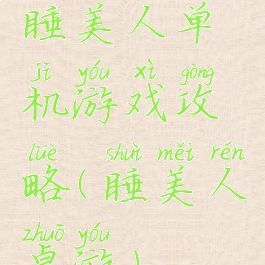 睡美人单
jī yóu xì gōng
机游戏攻
lüè shuì měi rén
略(睡美人
zhuō yóu
桌游)